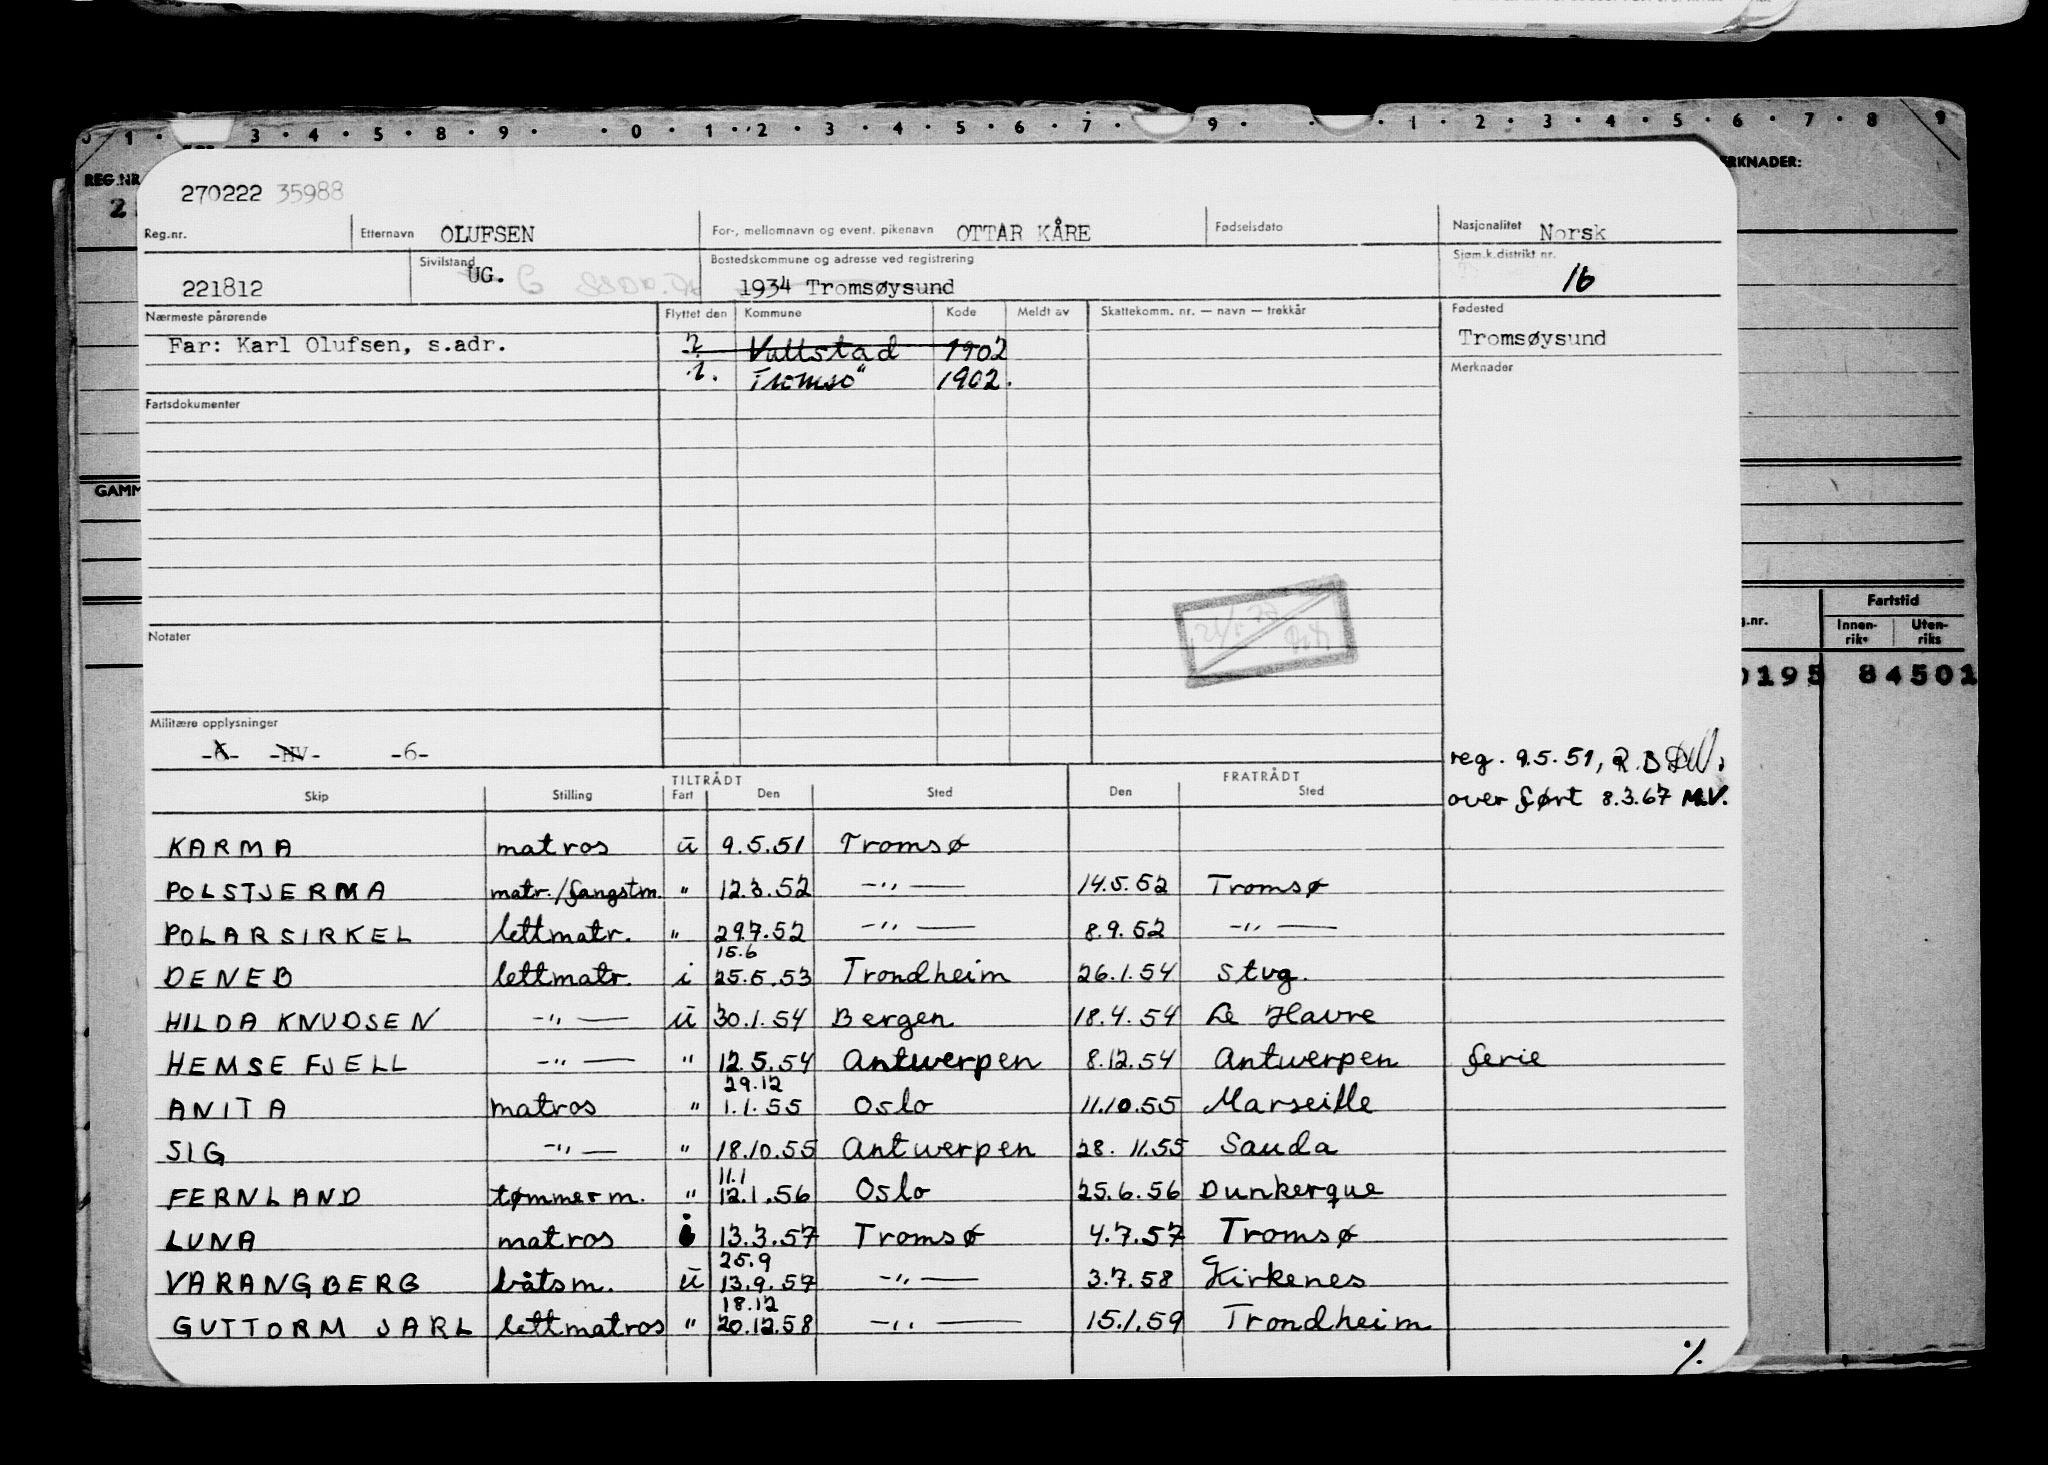 0 1 · 3 · 4 · 5 · 8 · 9 · · 0 · 1 · 2 · 3 · 4 · 5 · 6 · 7 · 9 · · 1 · 2 · 3 · 4 · 5 · 6 · 7 · 8 9
REG.NR
ERKNADER:
270222 35988
Reg.nr. Etternavn OLUFSEN For-, mellomnavn og event. pikenavn OTTAR KÅRE Fødselsdato Nasjonalitet Norsk
221812 Sivilstand UG. Bostedskommune og adresse ved registrering 1934 Tromsøysund Sjøm.k.distrikt nr. 16
Nærmeste pårørende Flyttet den Kommune Kode Meldt av Skattekomm. nr. — navn — trekkår Fødested
Far: Karl Olufsen, s.adr. Vallstad 1902 Tromsøysund
Tromsö 1902. Merknader
Fartsdokumenter
GAMM
Fartstid
g.nr. Innen-riks Uten-riks
Notater
0195 84501
Militære opplysninger
-6- -HV- -6-
reg. 9.5.51, R.B
overført 8.3.67 M.V.
TILTRÅDT FRATRÅDT
Skip Stilling Fart Den Sted Den Sted
KARMA matros ū 9.5.51 Tromsø
POLSTJERMA matr./fangstm. " 12.3.52 -"- 14.5.52 Tromsø
POLARSIRKEL lettmatr. " 29.7.52 -"- 8.9.52 -"-
15.6
DENEB lettmatr. i 25.5.53 Trondheim 26.1.54 Stvg.
HILDA KNUDSEN -"- ū 30.1.54 Bergen 18.4.54 Le Havre
HEMSEFJELL -"- " 12.5.54 Antwerpen 8.12.54 Antwerpen ferie
29.12
ANITA matros " 1.1.55 Oslo 11.10.55 Marseille
SIG -"- " 18.10.55 Antwerpen 28.11.55 Sauda
11.1
FERNLAND tømmerm. " 12.1.56 Oslo 25.6.56 Dunkerque
LUNA matros i 13.3.57 Tromsø 4.7.57 Tromsø
25.9
VARANGBERG båtsm. ū 13.9.57 -"- 3.7.58 Kirkenes
18.12
GUTTORM JARL lettmatros " 20.12.58 -"- 15.1.59 Trondheim
./.